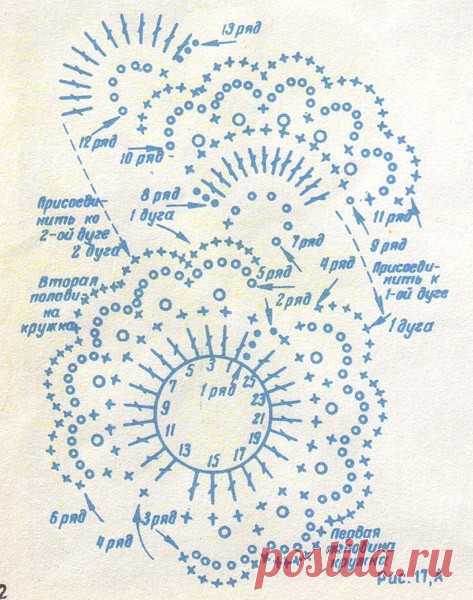 13 ряд
12 ряд
10 ряд
Присоеди-
нить ко
2-ой дуге
2 дуга
8 ряд
1 дуга
11 ряд
7 ряд
9 ряд
4 ряд
Присоеди-
нить к
1-ой дуге
5 ряд
2 ряд
1 дуга
Вторая
полови-
на
кружка
1 ряд
1
3
5
7
9
11
13
15
17
19
21
23
25
6 ряд
4 ряд
3 ряд
Первая
половина
кружка
Рис. 17, А
2
postila.ru